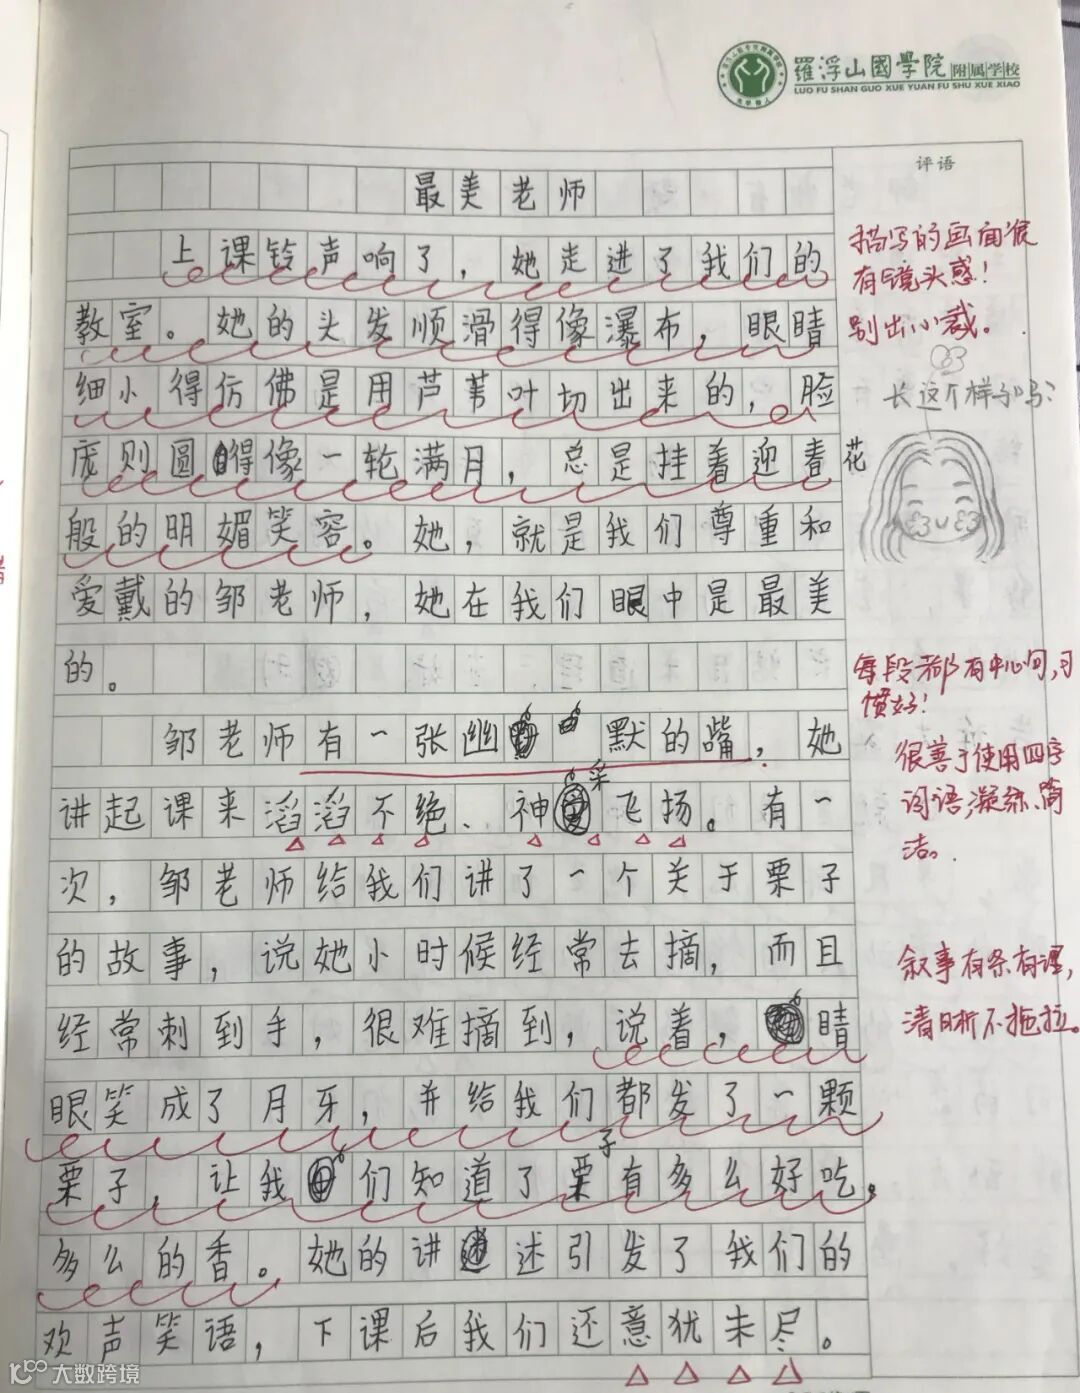 羅浮山國學院附属学校
LUO FU SHAN GUO XUE YUAN FU SHU XUE XIAO
评语
最美老师
上课铃声响了，她走进了我们的
教室。她的头发顺滑得像瀑布，眼睛
细小得仿佛是用芦苇叶切出来的，脸
庞则圆得像一轮满月，总是挂着迎春花
般的明媚笑容。她，就是我们尊重和
爱戴的邹老师，她在我们眼中是最美
的。
邹老师有一张幽默的嘴，她
讲起课来滔滔不绝、神采飞扬。有一
次，邹老师给我们讲了一个关于栗子
的故事，说她小时候经常去摘，而且
经常刺到手，很难摘到，说着，睛
眼笑成了月牙，并给我们都发了一颗
栗子，让我们知道了栗子有多么好吃，
多么的香。她的讲述引发了我们的
欢声笑语，下课后我们还意犹未尽。
描写的画面很
有镜头感！
别出心裁。
长这个样子吗？
每段都有中心句，习
惯好！
很善于使用四字
词语，凝练、简
洁。
叙事有条有理，
清晰不拖拉。
大数跨境